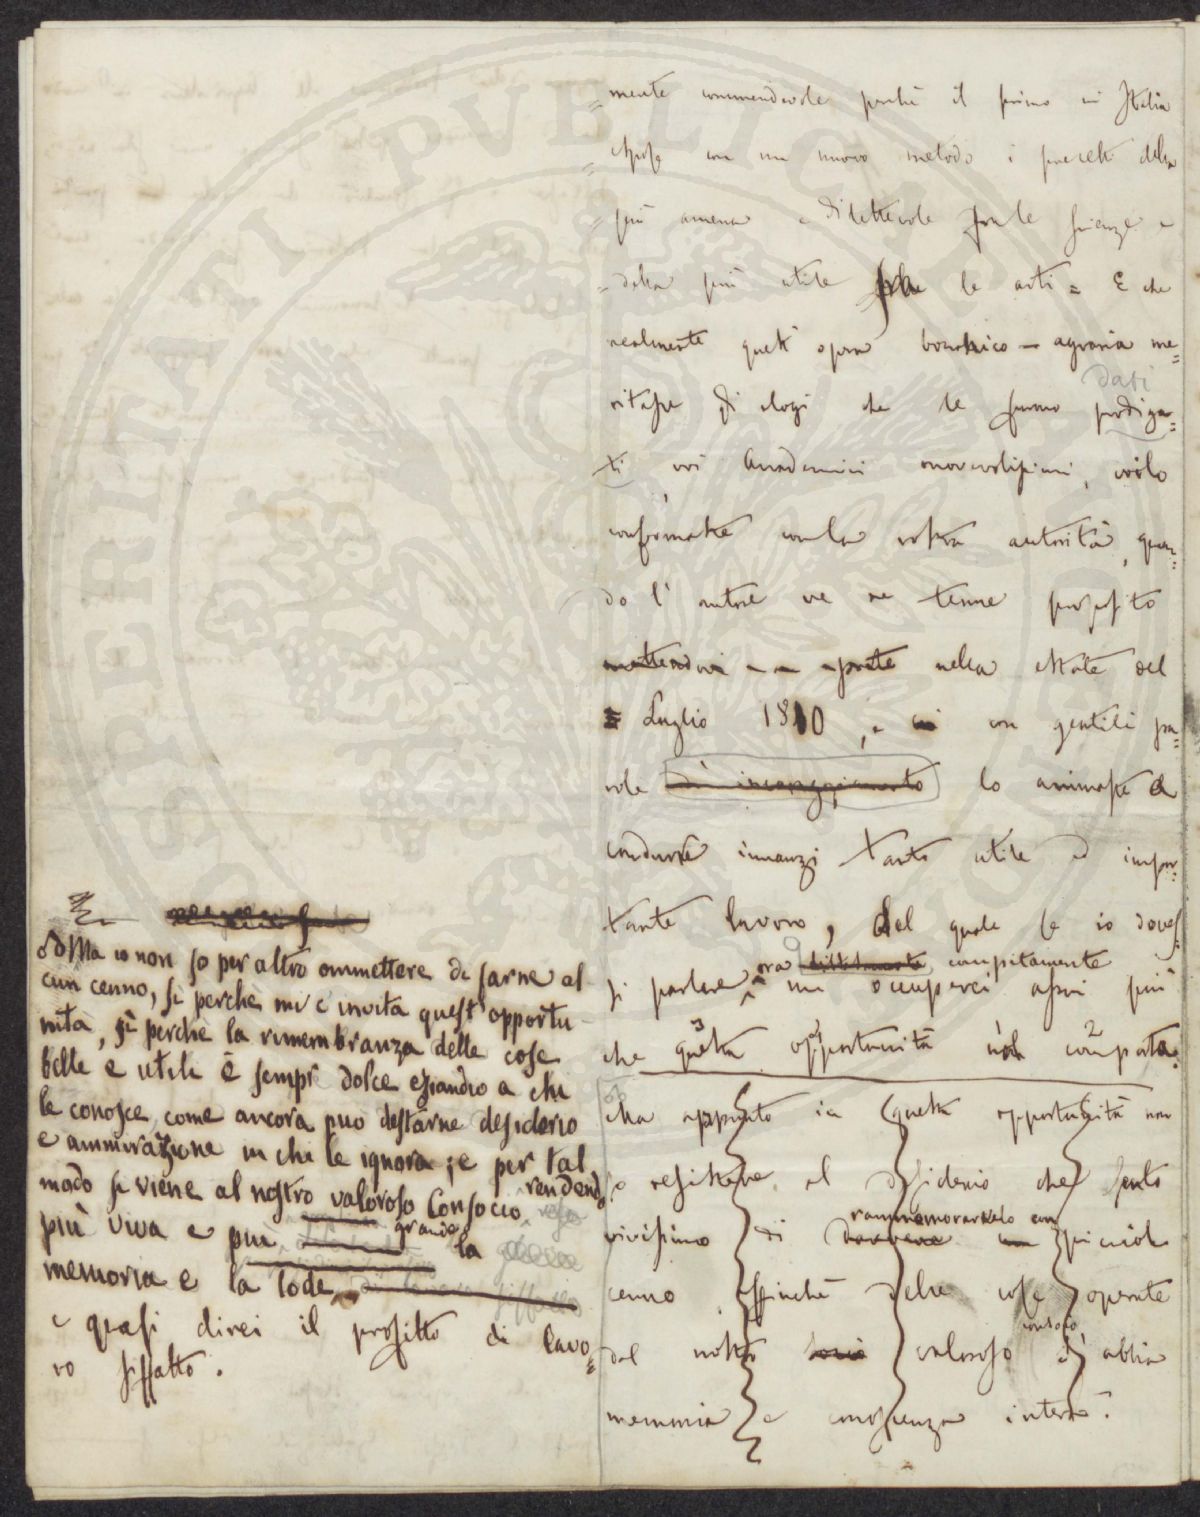 = mente commendevole perchè il primo in Italia
= espose con un nuovo metodo i precetti della
= più amena e dilettevole fra le scienze e
= della più utile fra le arti = E che
realmente quest'opera botanico-agraria me=
dati
ritasse gli elogi che le furono prodiga=
ti, voi Accademici onorevolissimi, voilo
confermaste con la vostra autorità, quan=
do l'autore ve ne tenne proposito
nella estate del
Luglio 1810, e con gentili pa=
role di incoraggiamento lo animaste a
condurre innanzi tanto utile ed impor=
tante lavoro, del quale se io doves
ora compitamente
si parlare mi occuperei assai più
3 2
che questa opportunità nol comporta.
Ma appunto in questa opportunità non
so resistere al desiderio che sento
rammemorarvelo con
vivissimo di picciol
cenno, affinchè delle cose operate
consocio
dal nostro socio valoroso si abbia
memoria e conoscenza intera.
Ma io non so per altro ommettere di farne al
cun cenno, sì perchè mi c'invita quest'opportu-
nità, sì perche la rimembranza delle cose
belle e utili è sempre dolce eziandio a chi
le conosce, come ancora puo destarne desiderio
e ammirazione in chi le ignora; e per tal
modo si viene al nostro valoroso Consocio rendendo
più viva e più grande la
memoria e la lode
e quasi direi il profitto di lavo=
ro siffatto.